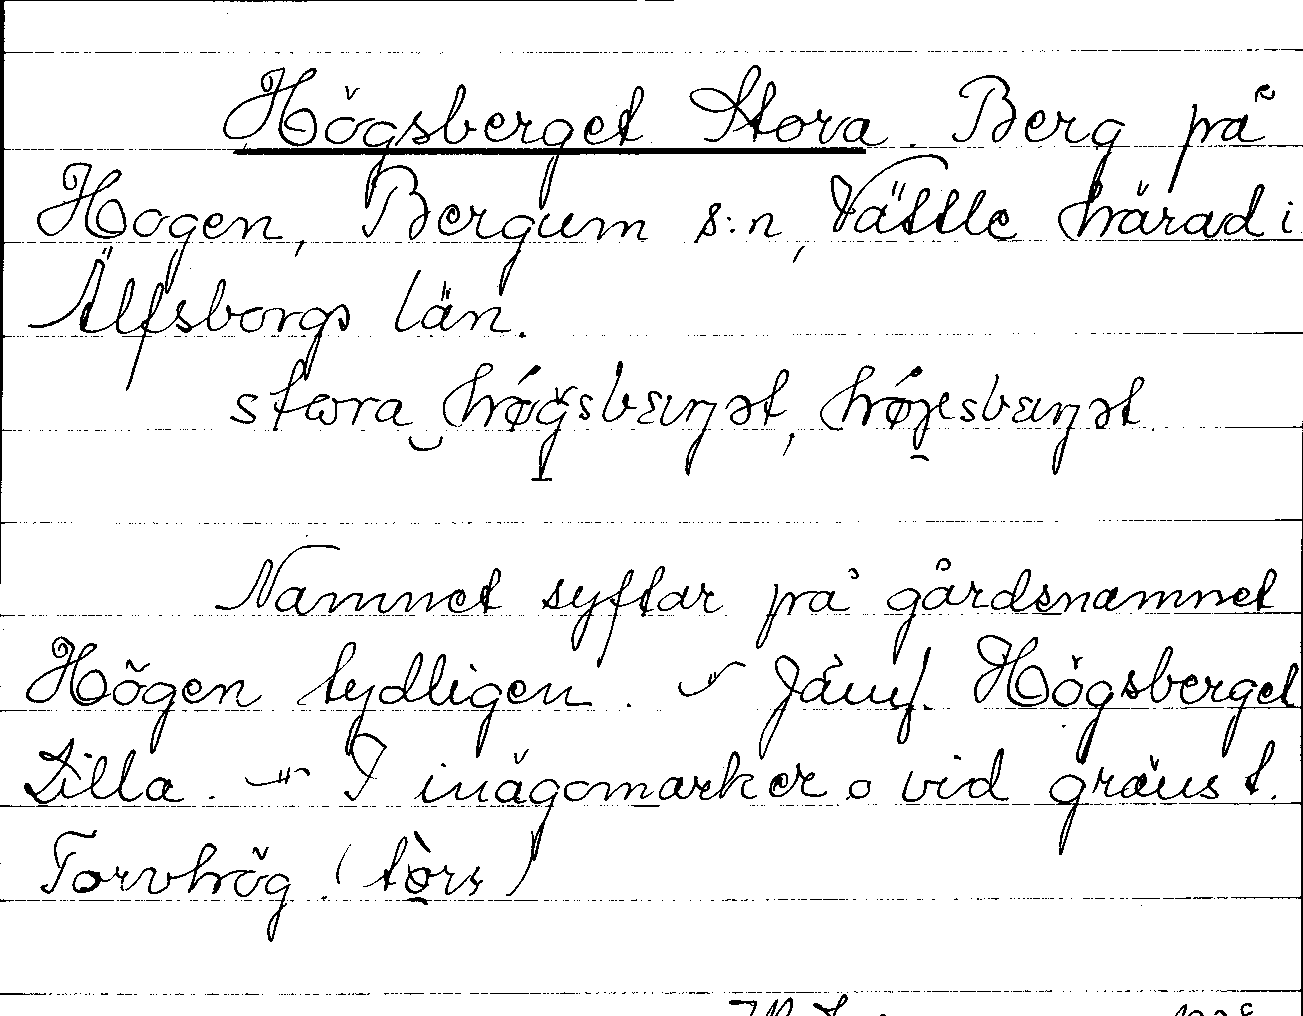 Högsberget Stora. Berg på
Hogen, Bergum s:n, Vättle härad i
Älfsborgs län.
stora högsbærjət, höjesbærjət.
Namnet syftar på gårdsnamnet
Högen tydligen. — Jämf. Högsberget
Lilla. — I inägomarker o vid gräns t.
Torvhög. (tòrs)